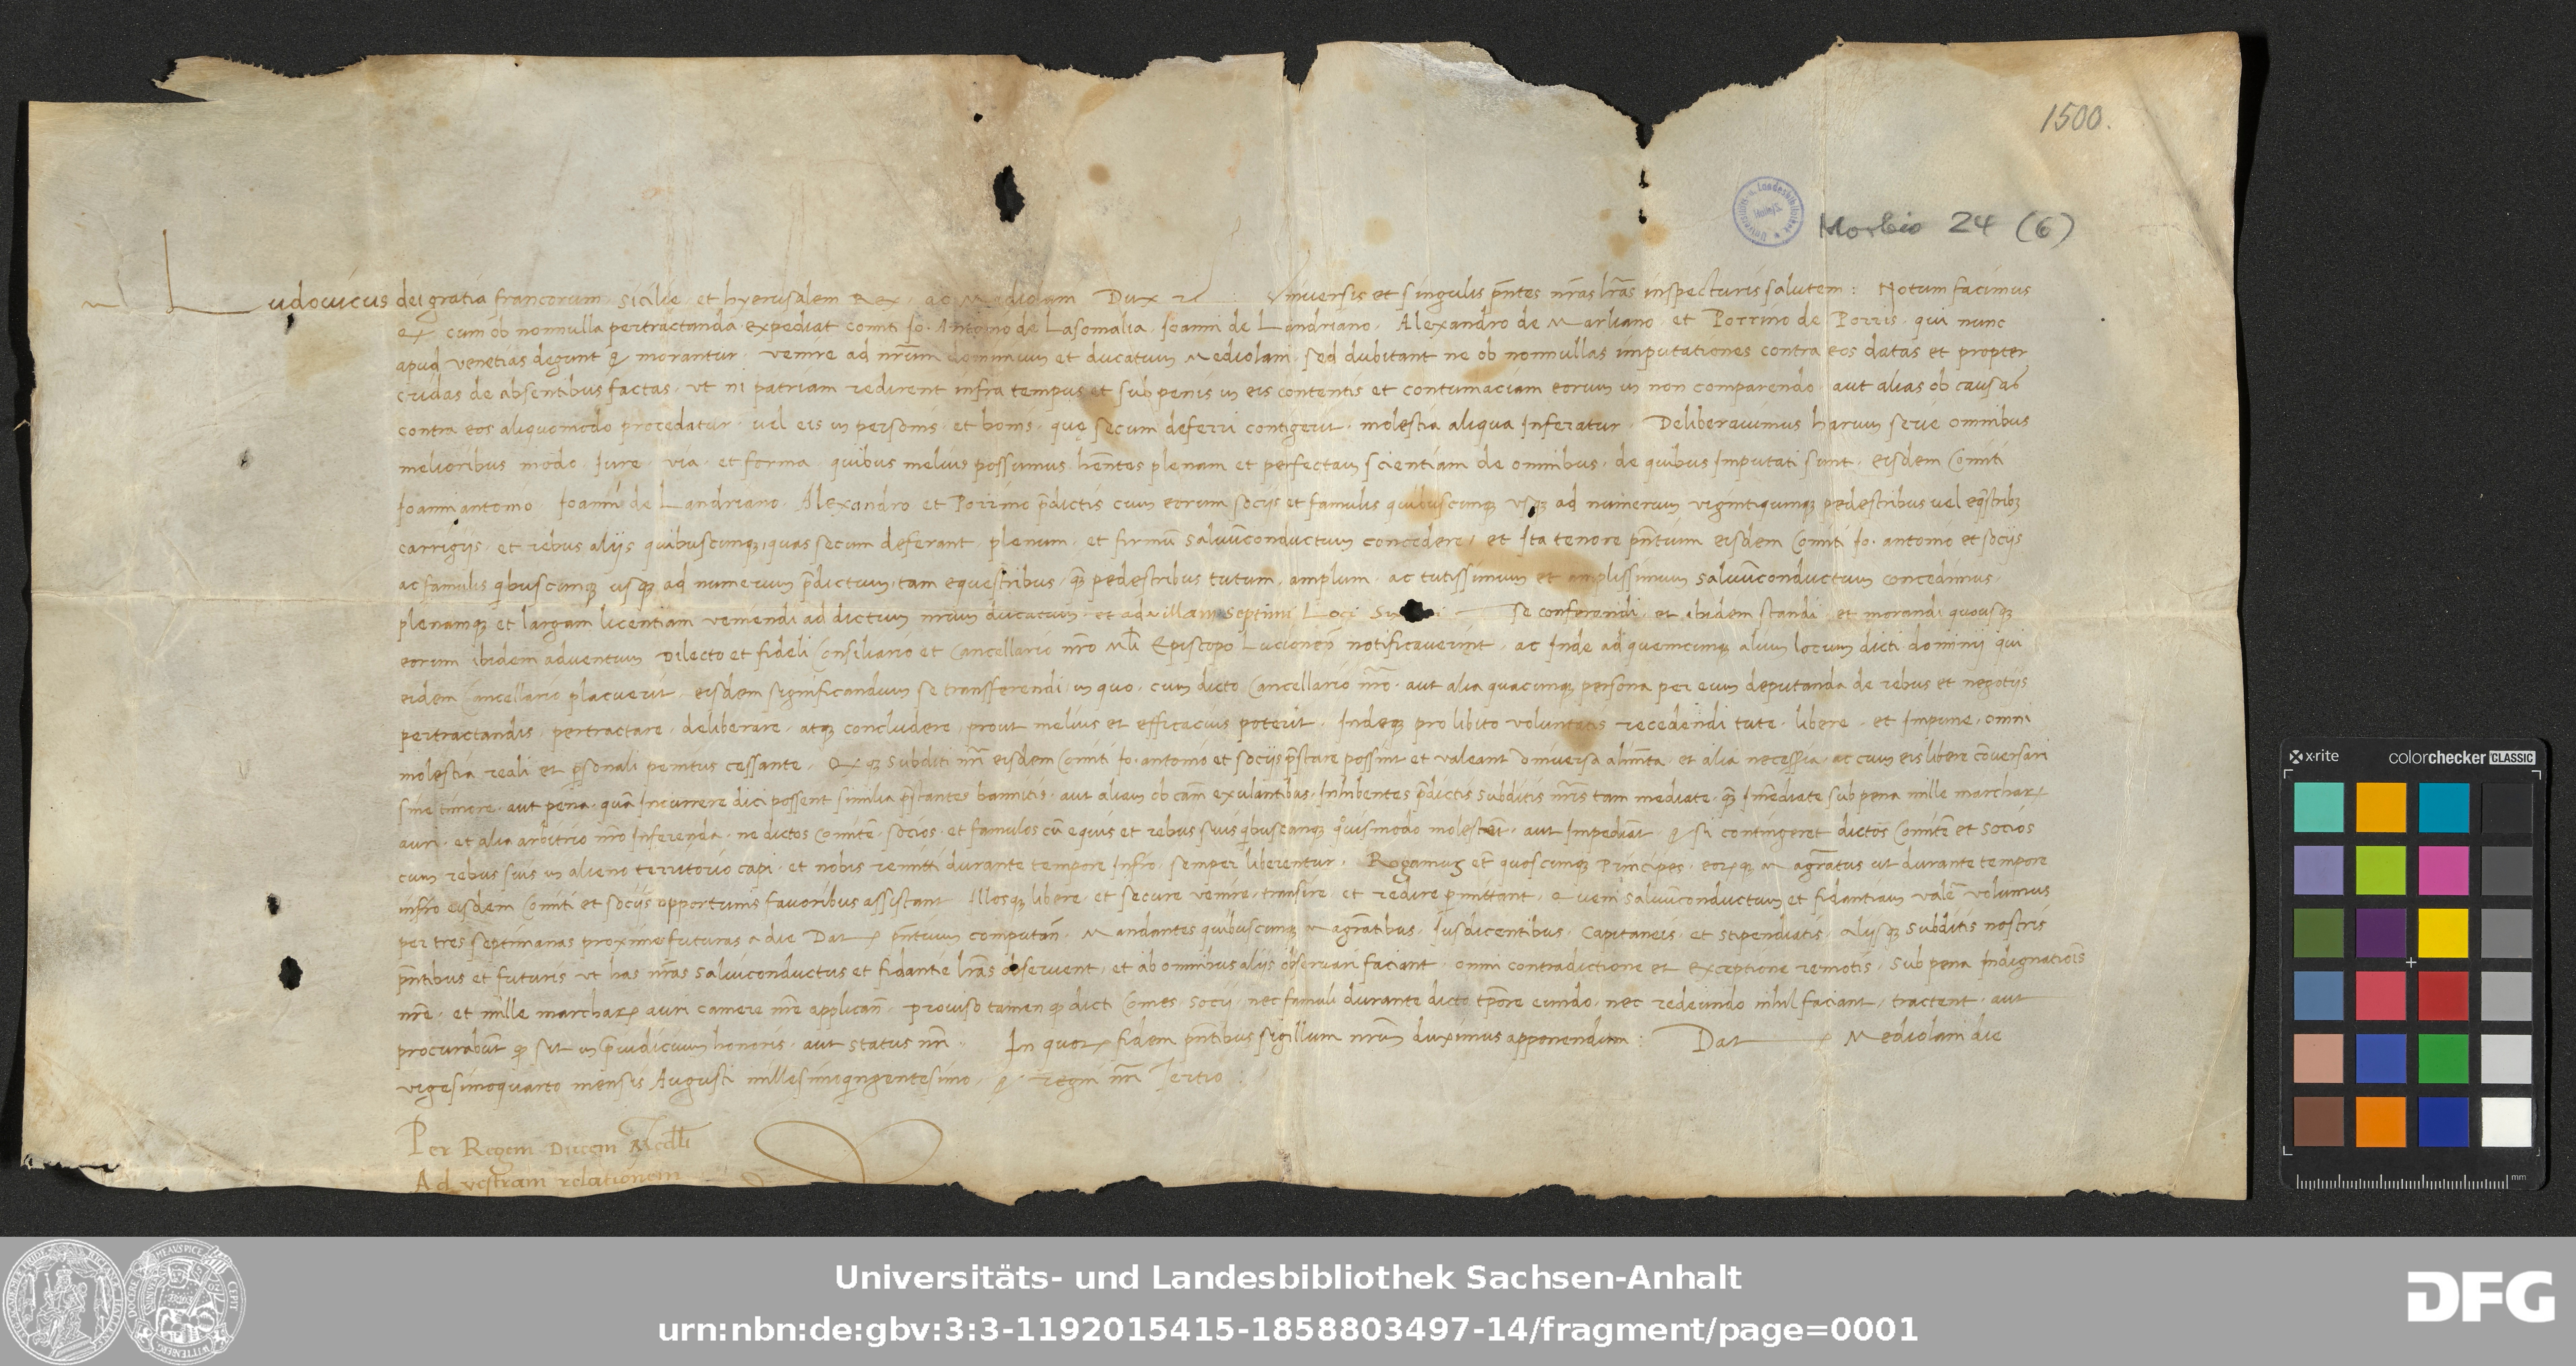 1500.
Morbio 24 (6)
Ludovicus dei gratia francorum Sicilie et hyerusalem Rex, ac Mediolani Dux ꝛc : Universis et singulis pñtes nr̃as lr̃as inspecturis salutem : Notum facimus
cum ob nonnulla pertractanda expediat comiti Jo. Antonio de Lasomalia, Joanni de Landriano, Alexandro de Marliano, et Porrino de Porris, qui nunc
apud venetias degunt & morantur, venire ad nr̃um dominium et ducatum Mediolani, sed dubitant ne ob nonnullas imputationes contra eos datas et propter
cridas de absentibus factas, ut ni patriam redirent infra tempus et sub penis in eis contentis et contumaciam eorum in non comparendo, aut alias ob causas
contra eos aliquomodo procedatur, vel eis in personis, et bonis, quę secum deferri contigerit, molestia aliqua Inferatur. Deliberavimus harum serie omnibus
melioribus modo, Jure, via, et forma, quibus melius possumus, hñtes plenam et perfectam scientiam de omnibus, de quibus Imputati sunt, eisdem Comiti
Joanniantonio Joanni de Landriano, Alexandro et Porrino p̃dictis cum eorum socijs et famulis quibuscunqꝫ usqꝫ ad numerum vigintiquinqꝫ pedestribus vel eq̃stribꝫ
carrigijs, et rebus alijs quibuscunqꝫ, quas secum deferant, plenum, et firmũ salvũconductum concedere, et Ita tenore pñtium eisdem Comiti Jo. antonio et socijs
ac famulis q̃buscunqꝫ usqꝫ ad numerum p̃dictum, tam equestribus, q̃ꝫ pedestribus tutum, amplum, ac tutissimum et amplissimum salvũconductum concedimus,
plenamqꝫ et largam licentiam veniendi ad dictum nr̃um ducatum, et ad villam Septimi Loci se conferendi, et ibidem standi et morandi quousqꝫ
eorum ibidem adventum Dilecto et fideli Consiliario et Cancellario nr̃o Mlĩ Episcopo Lucionen̄ notificaverint, ac Inde ad quemcunqꝫ alium locum dicti dominij qui
eidem Cancellario placuerit, eisdem significandum se transferendi, in quo, cum dicto Cancellario nr̃o, aut alia quacunqꝫ persona per eum deputanda de rebus et negotijs
pertractandis, pertractare, deliberare, atqꝫ concludere, prout melius et efficacius poterit, Indeqꝫ pro libito voluntatis recedendi tute, libere, et Impune, omni
molestia reali et p̱sonali penitus cessante, Et qꝫ subditi nr̃i eisdem Comiti Jo. antonio et socijs p̃stare possint et valeant universa alim̃ta, et alia necess̃ia, ac cum eis libere cõversari
sine timore, aut pena, quã Incurrere dici possent similia p̃stantes bannitis, aut aliam ob cam̃ exulantibus, Inhibentes p̃dictis subditis nr̃is tam mediate, q̃ꝫ Im̃ediate sub pena mille marcharꝝ
auri, et alia arbitrio nr̃o Inferenda, ne dictos Comitẽ, socios, et famulos cũ equis et rebus suis q̃buscunqꝫ quovismodo molestẽt, aut Impediãt, & si contingeret dictos Comitẽ et socios
cum rebus suis in alieno territorio capi, et nobis remitti durante tempore Infr̃o, semper liberentur, Rogamus et quoscunqꝫ Principes, eorꝫqꝫ Magr̃atus ut durante tempore
infr̃o eisdem Comiti et socijs opportunis favoribus assistant, Illosqꝫ libere, et secure venire, transire, et redire p̱mittant, Quem salvũconductum et fidantiam valẽ volumus
per tres septimanas proxime futuras a die Dat ꝝ pñtium computan̄, Mandantes quibuscunqꝫ Magr̃atibus, Jusdicentibus, Capitaneis, et stipendiatis, alijsqꝫ subditis nostris
pñtibus et futuris ut has nr̃as salviconductus et fidantie lr̃as observent, et ab omnibus alijs observari faciant, omni contradictione et exceptione remotis, sub pena Indignatiõis
nr̃e, et mille marcharꝝ auri camere nr̃e applican̄, proviso tamen qꝫ dicti Comes, socij, nec famuli durante dicto tp̃ore eundo, nec redeundo nihil faciant, tractent, aut
procurabũt qꝫ sit in p̃iudicium honoris, aut status nr̃i. In quorꝝ fidem pñtibus sigillum nr̃um duximus apponendum : Dat ꝝ Mediolani die
vigesimoquarto mensis Augusti millesimoq̃ngentesimo, & regni nr̃i Tertio :
Per Regem Ducem Medlĩ
Ad vestram relationem
x-rite colorchecker CLASSIC
mm
Universitäts- und Landesbibliothek Sachsen-Anhalt
urn:nbn:de:gbv:3:3-1192015415-1858803497-14/fragment/page=0001
DFG